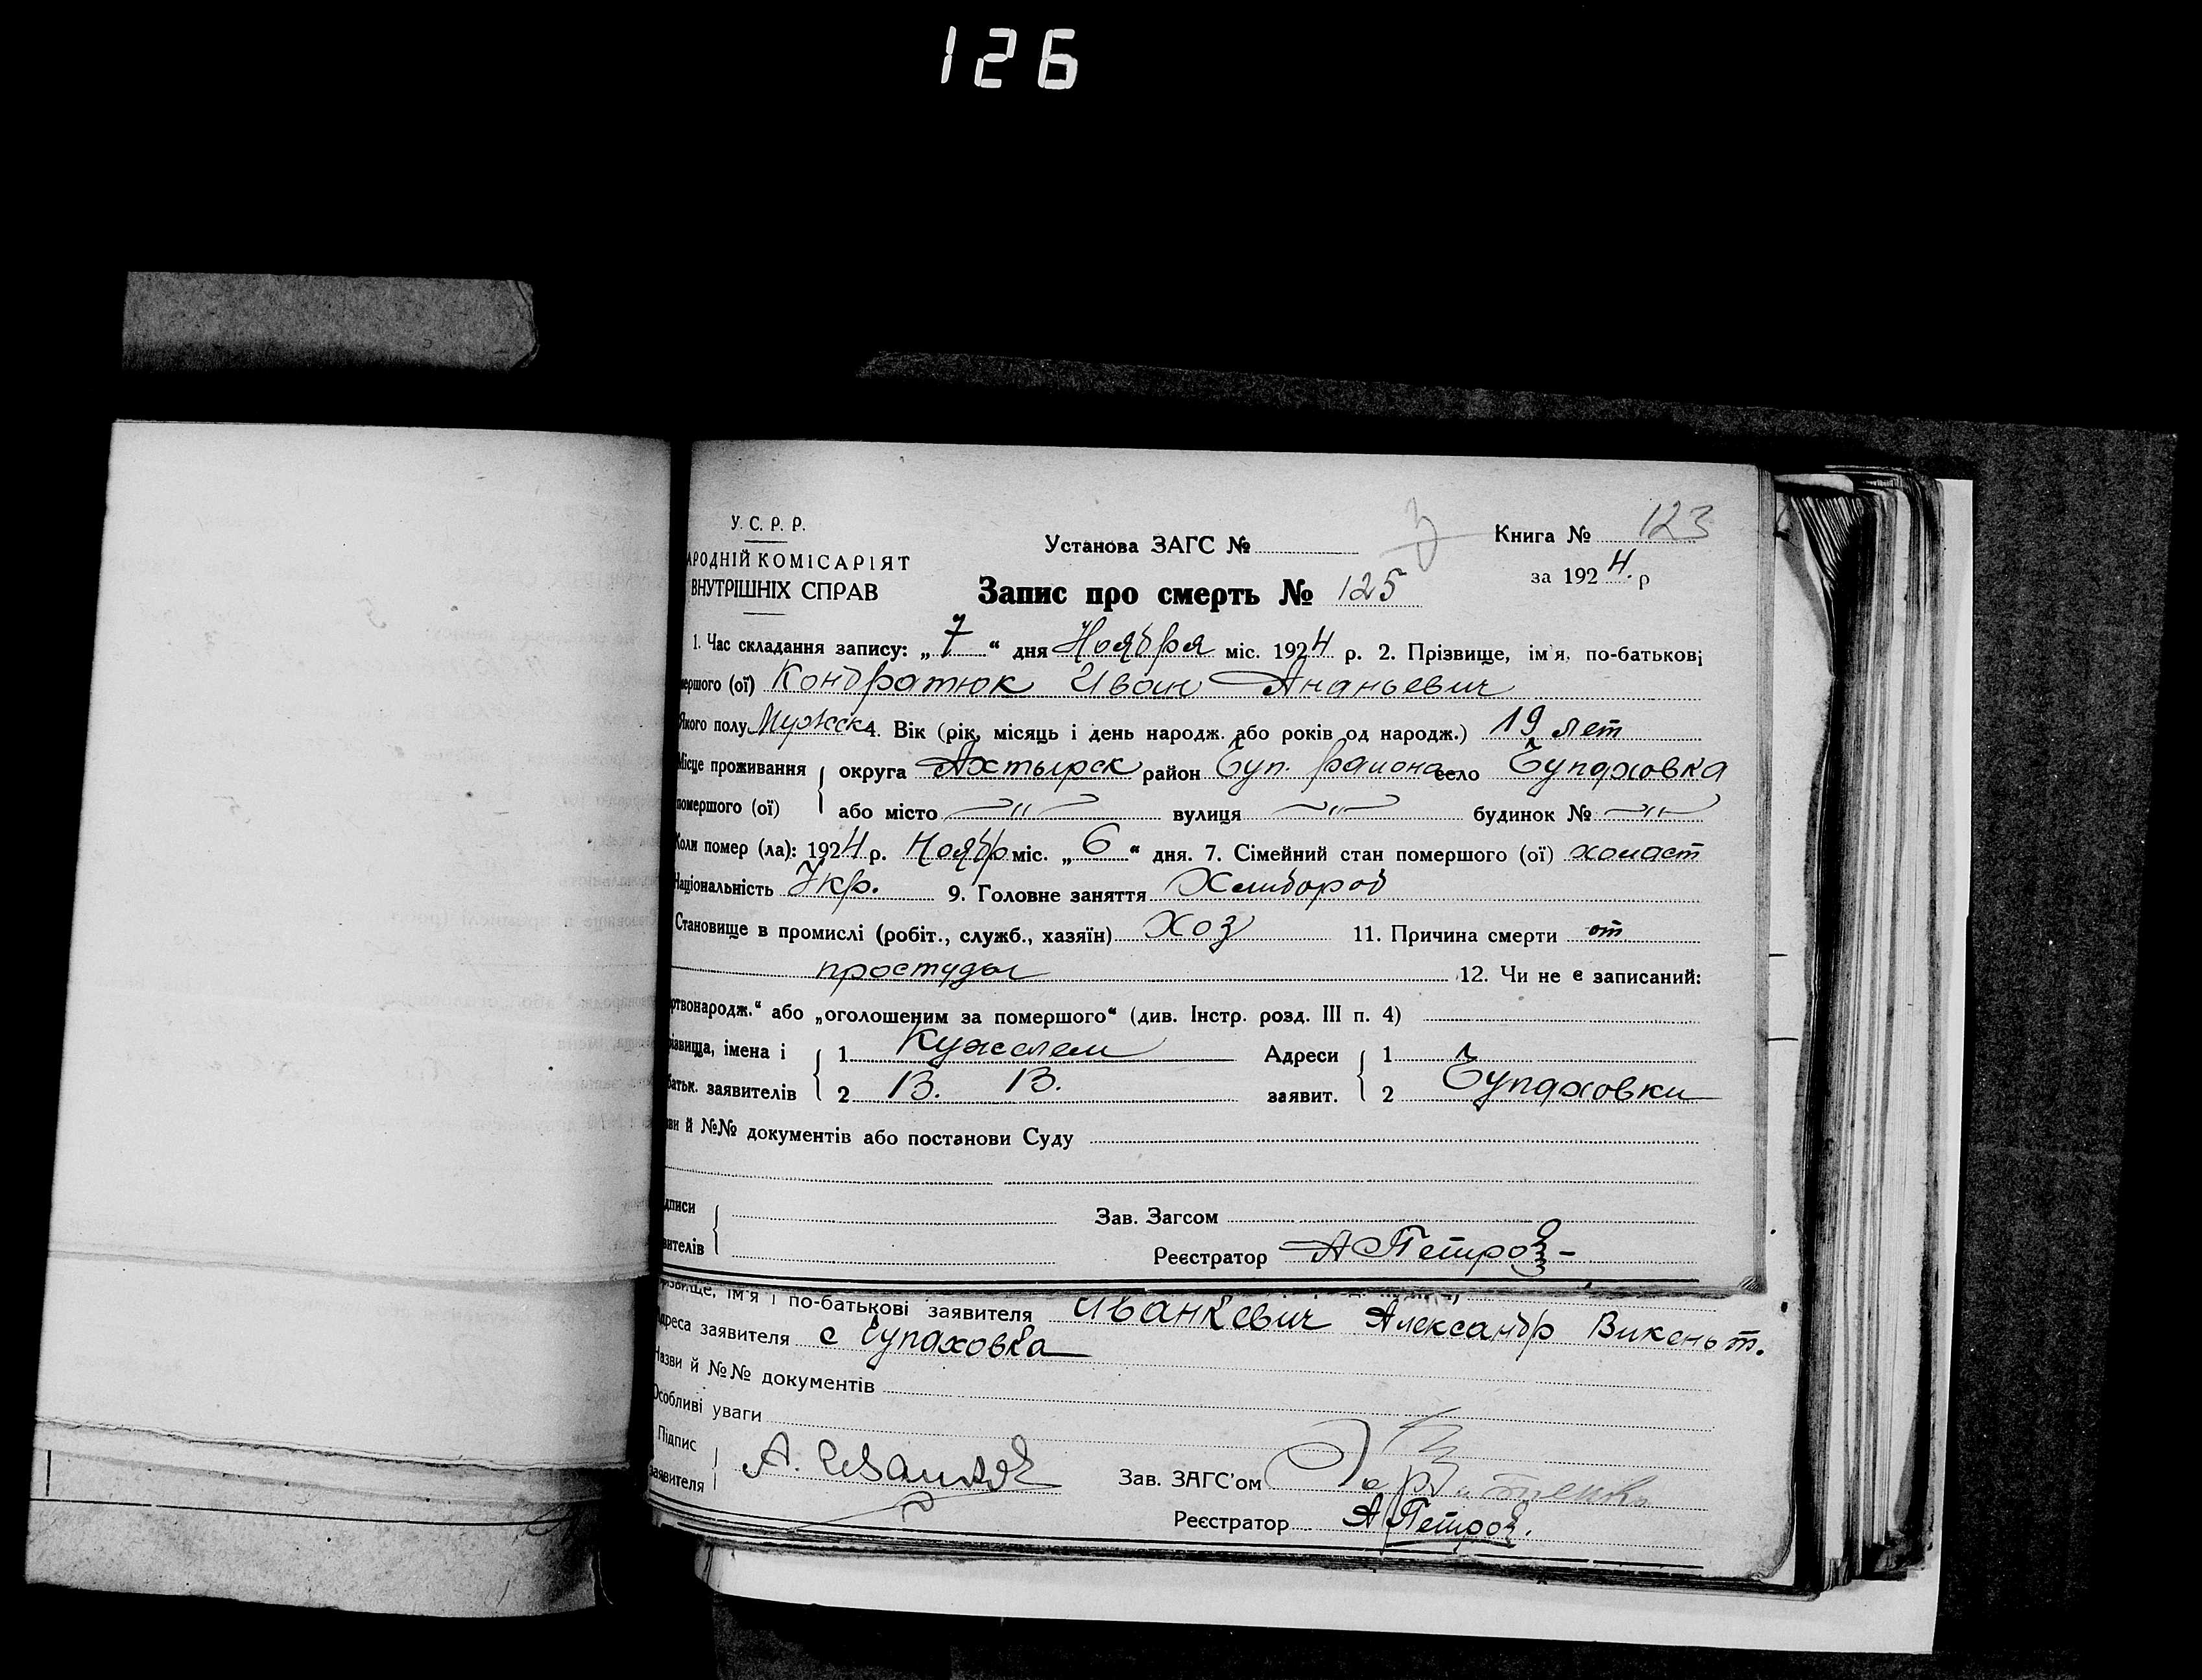 126
У. С. Р. Р.
АРОДНІЙ КОМІСАРІЯТ
ВНУТРІШНІХ СПРАВ
Установа ЗАГС №
З
Книга № 123
за 1924. р
Запис про смерть № 125
1. Час складання запису: „7“ дня Ноября міс. 1924 р. 2. Прізвище, ім'я, по-батькові
мершого (ої) Кондратюк Иван Ананьевич
Якого полу Мужск 4. Вік (рік, місяць і день народж. або років од народж.) 19 лет
Місце проживання округа Ахтырск район Чуп. района село Чупаховка
помершого (ої) або місто —〃— вулиця —〃— будинок № —〃—
Коли помер (ла): 1924 р. Ноябр міс. „6“ дня. 7. Сімейний стан помершого (ої) холаст
Національність Укр. 9. Головне заняття Хлибороб
Становище в промислі (робіт., служб., хазяїн) Хоз 11. Причина смерти от
простуды 12. Чи не є записаний:
ртвонародж.“ або „оголошеним за помершого“ (див. Інстр. розд. III п. 4)
ізвища, імена і 1 Адреси 1
батьк. заявителів 2 В. В. заявит. 2 Чупаховки
ви й №№ документів або постанови Суду
дписи Зав. Загсом
вителів Реєстратор А Петров
різвище, ім'я і по-батькові заявителя Иванкевич Александр Викеньт.
дреса заявителя с Чупаховка
Назви й №№ документів
Особливі уваги
Підпис
заявителя Зав. ЗАГС'ом
Реєстратор А Петров.